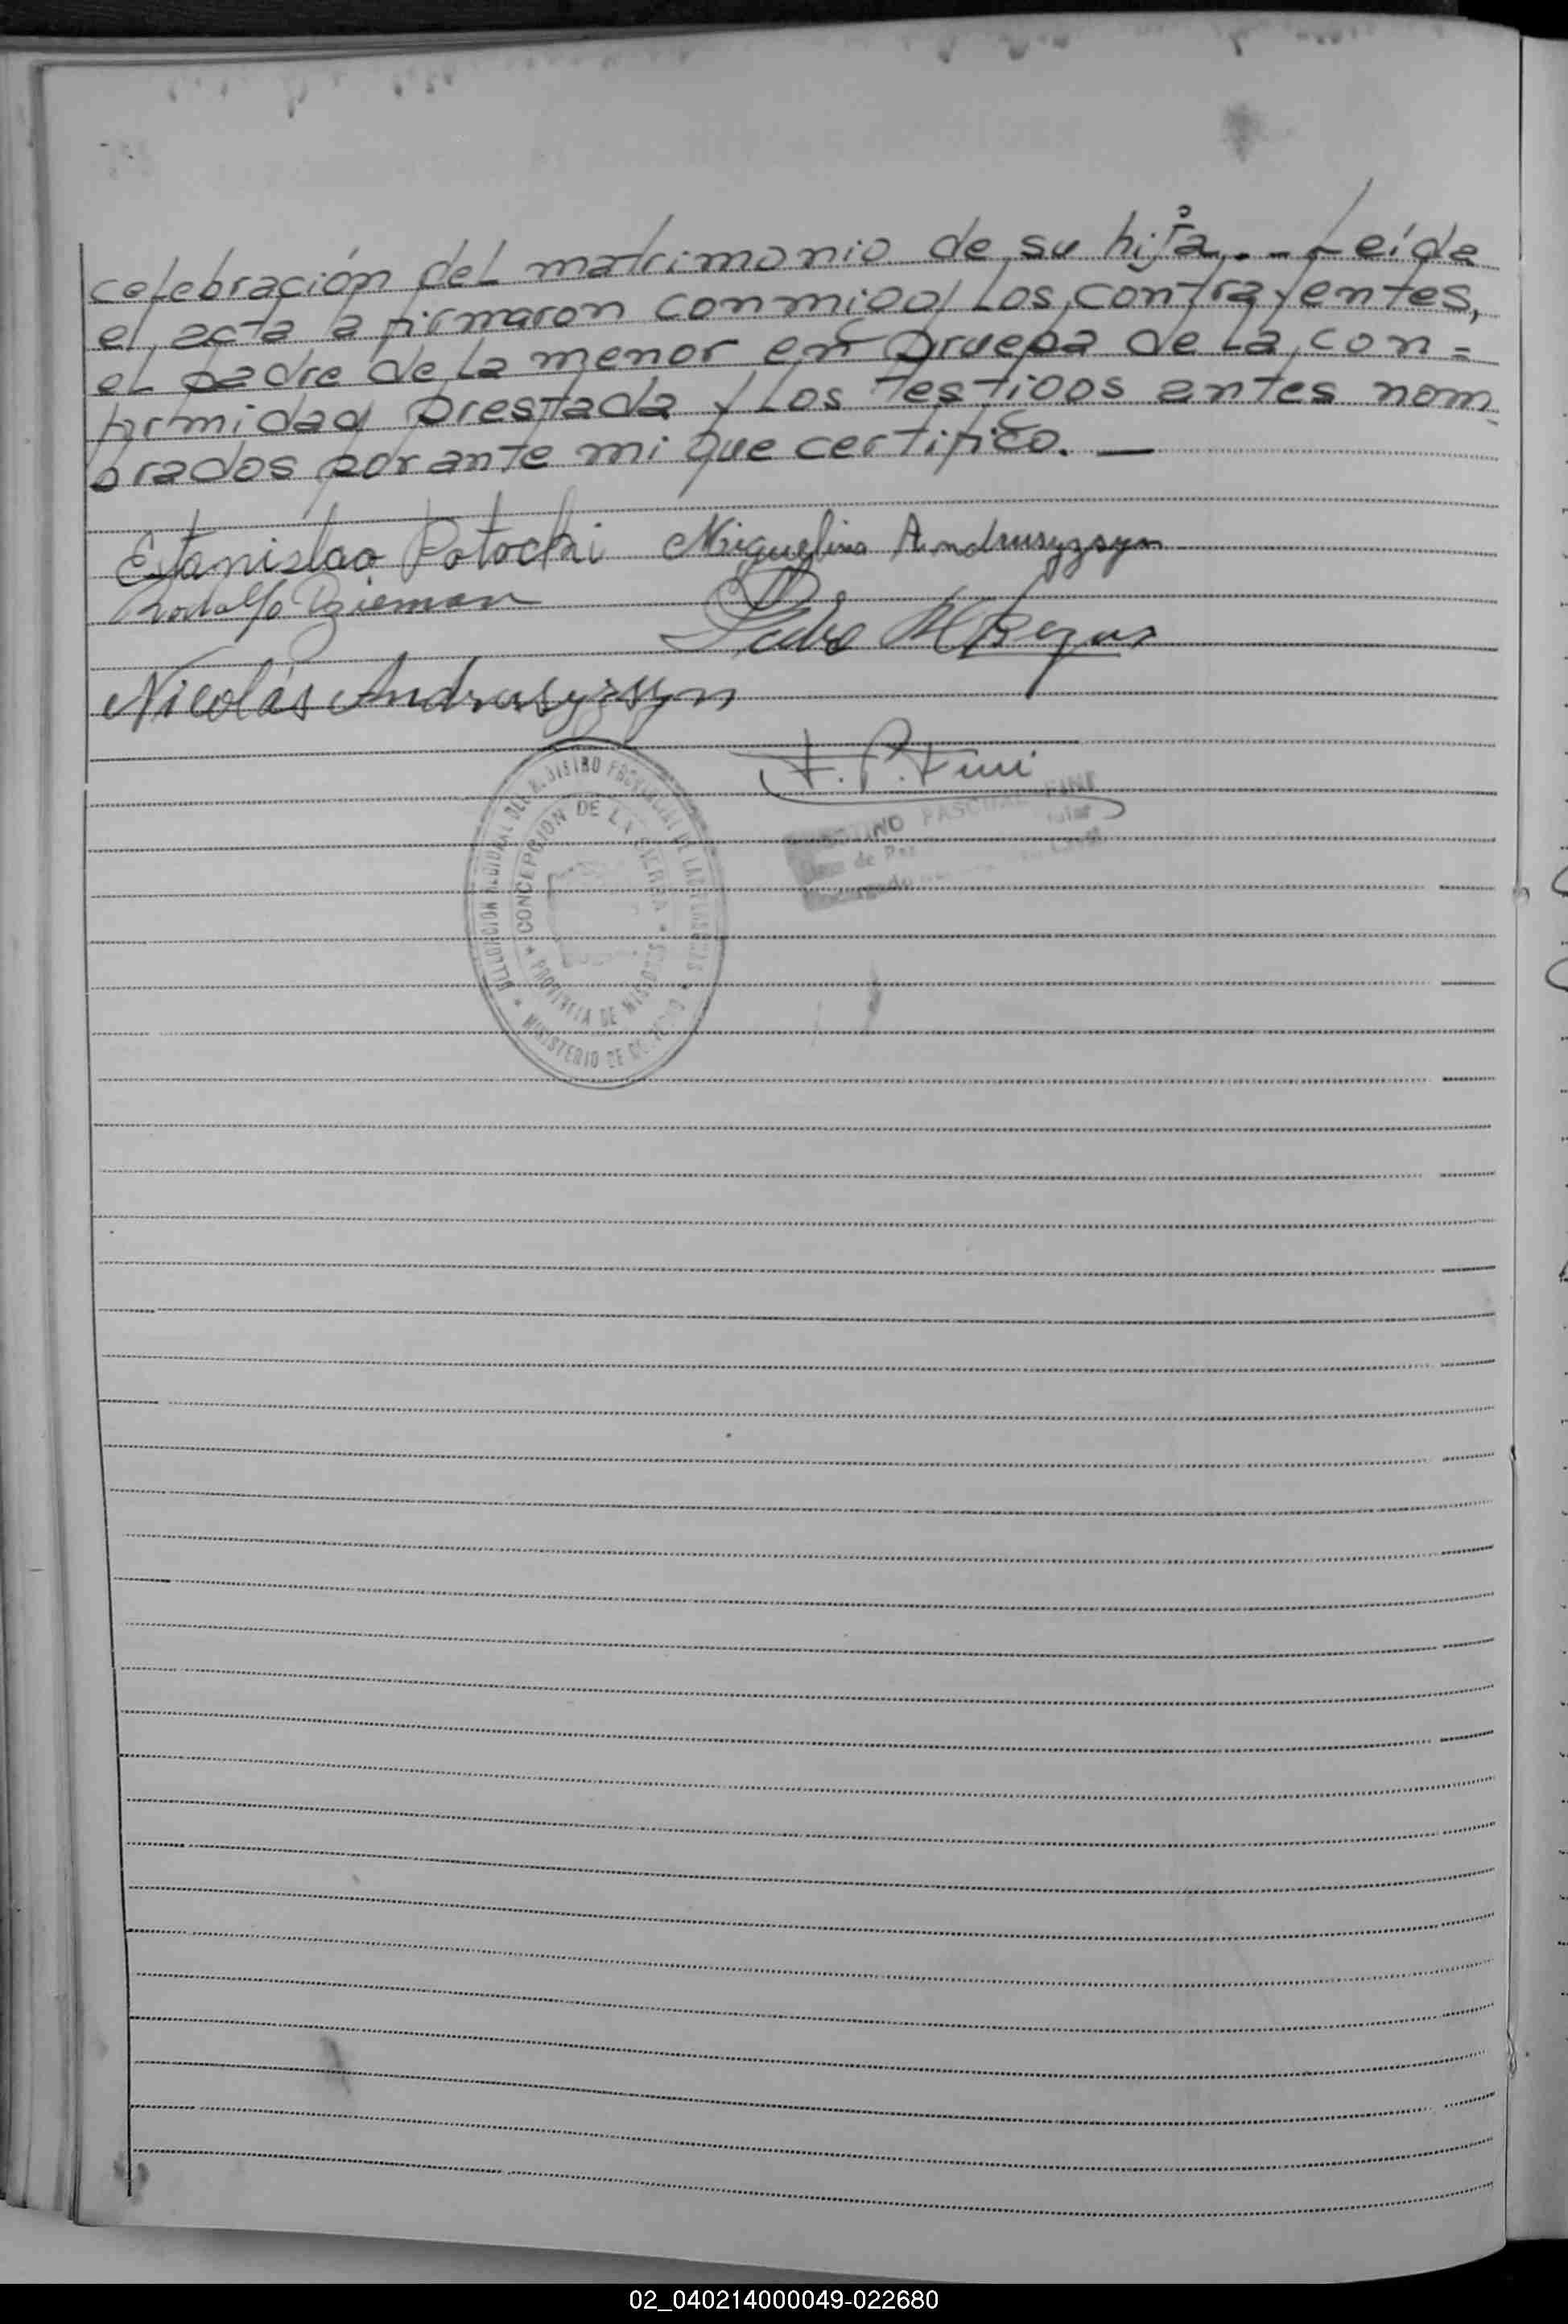 celebración del matrimonio de su hija. - Leída
el acta la firmaron conmigo los contrayentes,
el padre de la menor en prueba de la con-
formidad prestada y los testigos antes nom
brados por ante mi que certifico. —
Estanislao Potocki Miguelina Andrusyzsyn
Rodolfo Dzieman
Pedro
Nicolás Andrusyzsyn
F. P. Fini
PASCUAL FINI
de Paz
DELEGACION REGIONAL DEL REGISTRO PROVINCIAL DE LAS PERSONAS
CONCEPCION DE LA SIERRA
PROVINCIA DE MISIONES
MINISTERIO DE GOBIERNO
02_040214000049-022680